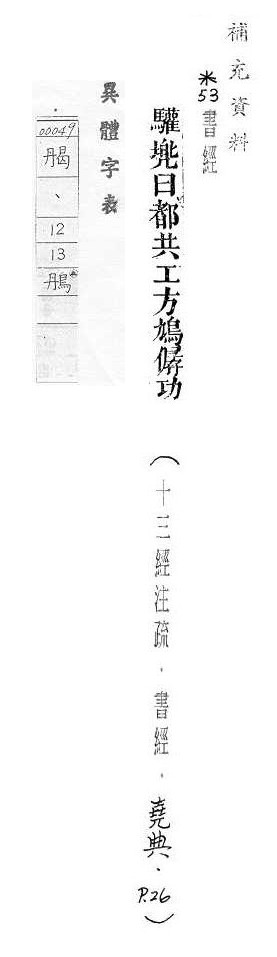 補充資料
*53書經
驩兠曰都共工方鳩僝功
(十三經注疏.書經.堯典.P.26)
異體字表
00049
、
12
13
鴅*